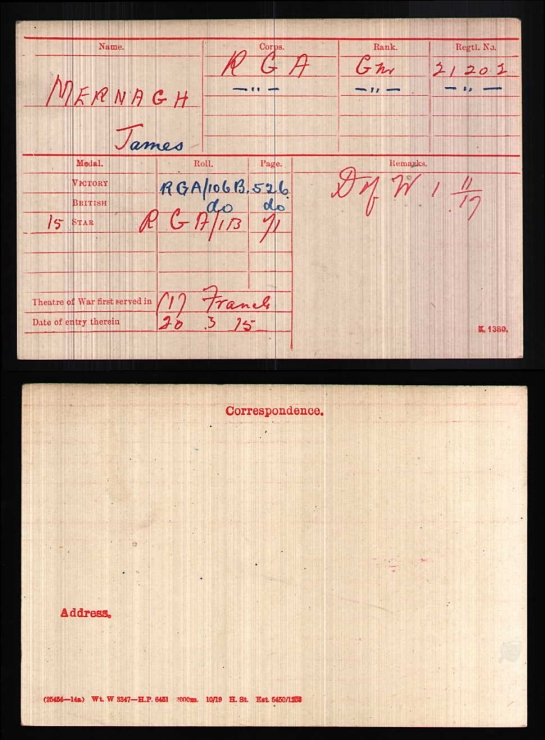 Name. Corps. Rank. Regtl. No.
R G A Gnr 21202
MERNAGH —"— —"— —"—
James
Medal. Roll. Page. Remarks.
VICTORY RGA/106B. 526 D of W 1/11/17
BRITISH do do
15 STAR R G A/1B
Theatre of War first served in (1) France
Date of entry therein 20 3 15
K. 1380.
Correspondence.
Address.
Wt. W 5247—H.P. 10/19 H. St.